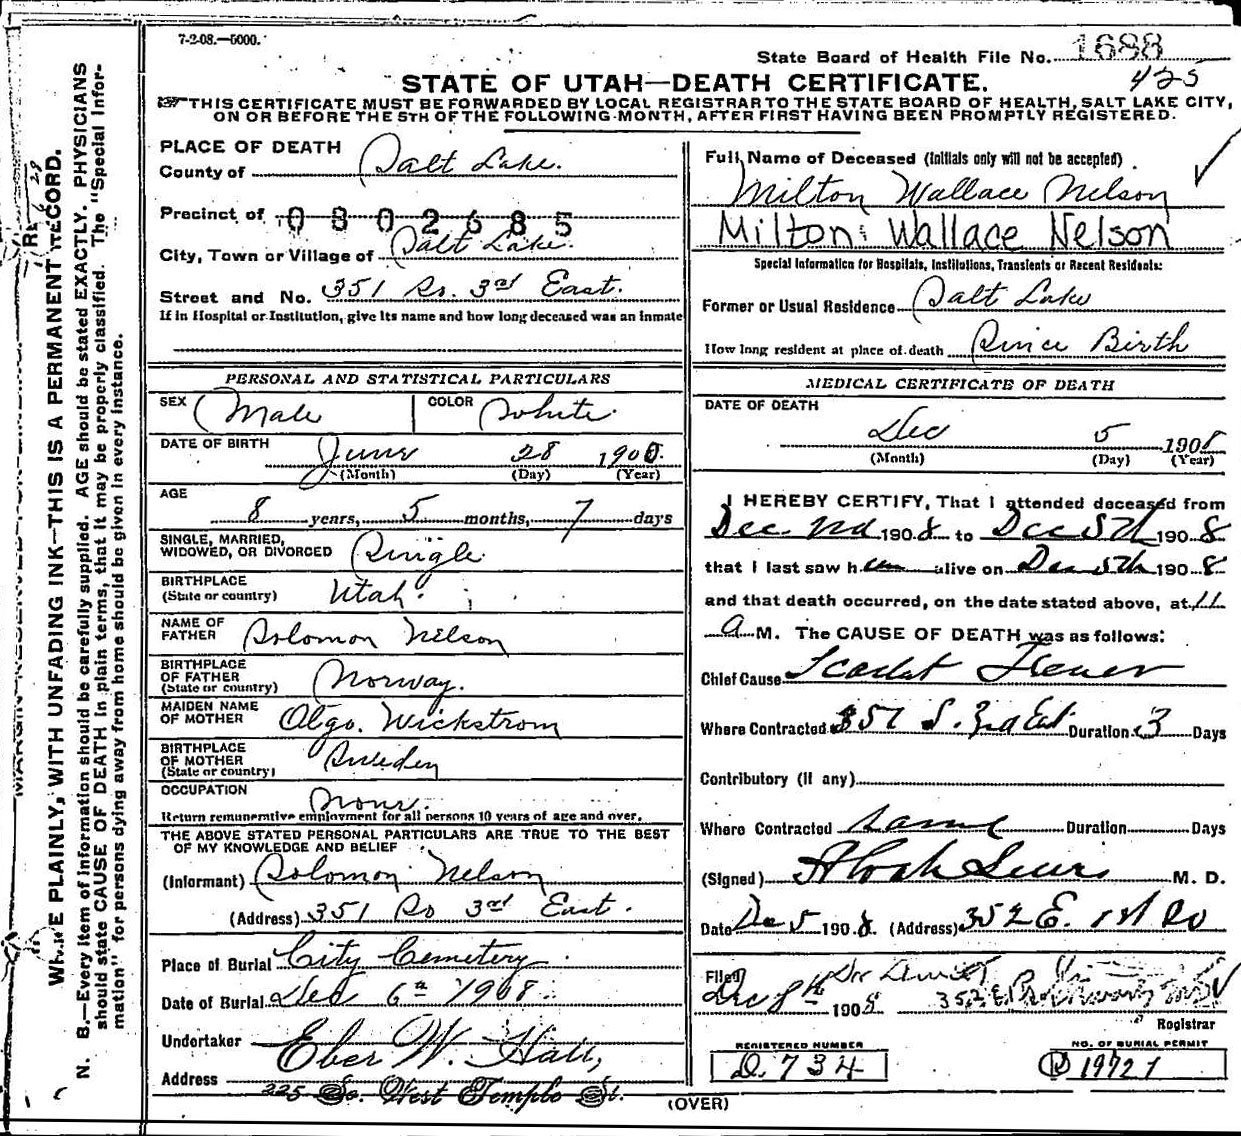 7-2-08.—5000.
State Board of Health File No. 1688
425
STATE OF UTAH—DEATH CERTIFICATE.
THIS CERTIFICATE MUST BE FORWARDED BY LOCAL REGISTRAR TO THE STATE BOARD OF HEALTH, SALT LAKE CITY,
ON OR BEFORE THE 5TH OF THE FOLLOWING MONTH, AFTER FIRST HAVING BEEN PROMPTLY REGISTERED.
WRITE PLAINLY, WITH UNFADING INK—THIS IS A PERMANENT RECORD.
N. B.—Every item of information should be carefully supplied. AGE should be stated EXACTLY. PHYSICIANS
should state CAUSE OF DEATH in plain terms, that it may be properly classified. The "Special Infor-
mation" for persons dying away from home should be given in every instance.
PLACE OF DEATH
County of Salt Lake.
Precinct of 0802685
City, Town or Village of Salt Lake.
Street and No. 351 So. 3rd East.
If in Hospital or Institution, give its name and how long deceased was an inmate
PERSONAL AND STATISTICAL PARTICULARS
SEX Male COLOR White.
DATE OF BIRTH June 28 1900.
(Month) (Day) (Year)
AGE
8 years, 5 months, 7 days
SINGLE, MARRIED,
WIDOWED, OR DIVORCED Single.
BIRTHPLACE
(State or country) Utah.
NAME OF
FATHER Solomon Nelson
BIRTHPLACE
OF FATHER
(State or country) Norway.
MAIDEN NAME
OF MOTHER Olga. Wickstrom
BIRTHPLACE
OF MOTHER
(State or country) Sweden
OCCUPATION None.
Return remunerative employment for all persons 10 years of age and over.
THE ABOVE STATED PERSONAL PARTICULARS ARE TRUE TO THE BEST
OF MY KNOWLEDGE AND BELIEF
(Informant) Solomon Nelson
(Address) 351 So 3rd East.
Place of Burial City Cemetery.
Date of Burial Dec 6th 1908.
Undertaker Eber W. Hall,
Address 225 So. West Temple St.
Full Name of Deceased (Initials only will not be accepted)
Milton Wallace Nelson
Milton Wallace Nelson
Special Information for Hospitals, Institutions, Transients or Recent Residents:
Former or Usual Residence Salt Lake
How long resident at place of death Since Birth
MEDICAL CERTIFICATE OF DEATH
DATE OF DEATH
Dec 5 1908
(Month) (Day) (Year)
I HEREBY CERTIFY, That I attended deceased from
Dec. 2nd 1908 to Dec 5th 1908
that I last saw him alive on Dec 5th 1908
and that death occurred, on the date stated above, at 11
a M. The CAUSE OF DEATH was as follows:
Chief Cause Scarlet Fever
Where Contracted 351 S. 3rd East Duration 3 Days
Contributory (if any)
Where Contracted same Duration Days
(Signed) M. D.
Date Dec 5 1908. (Address) 352 E. 1st So
Filed
Dec 8th 1908 352 E
Registrar
REGISTERED NUMBER
D. 734
NO. OF BURIAL PERMIT
19721
(OVER)